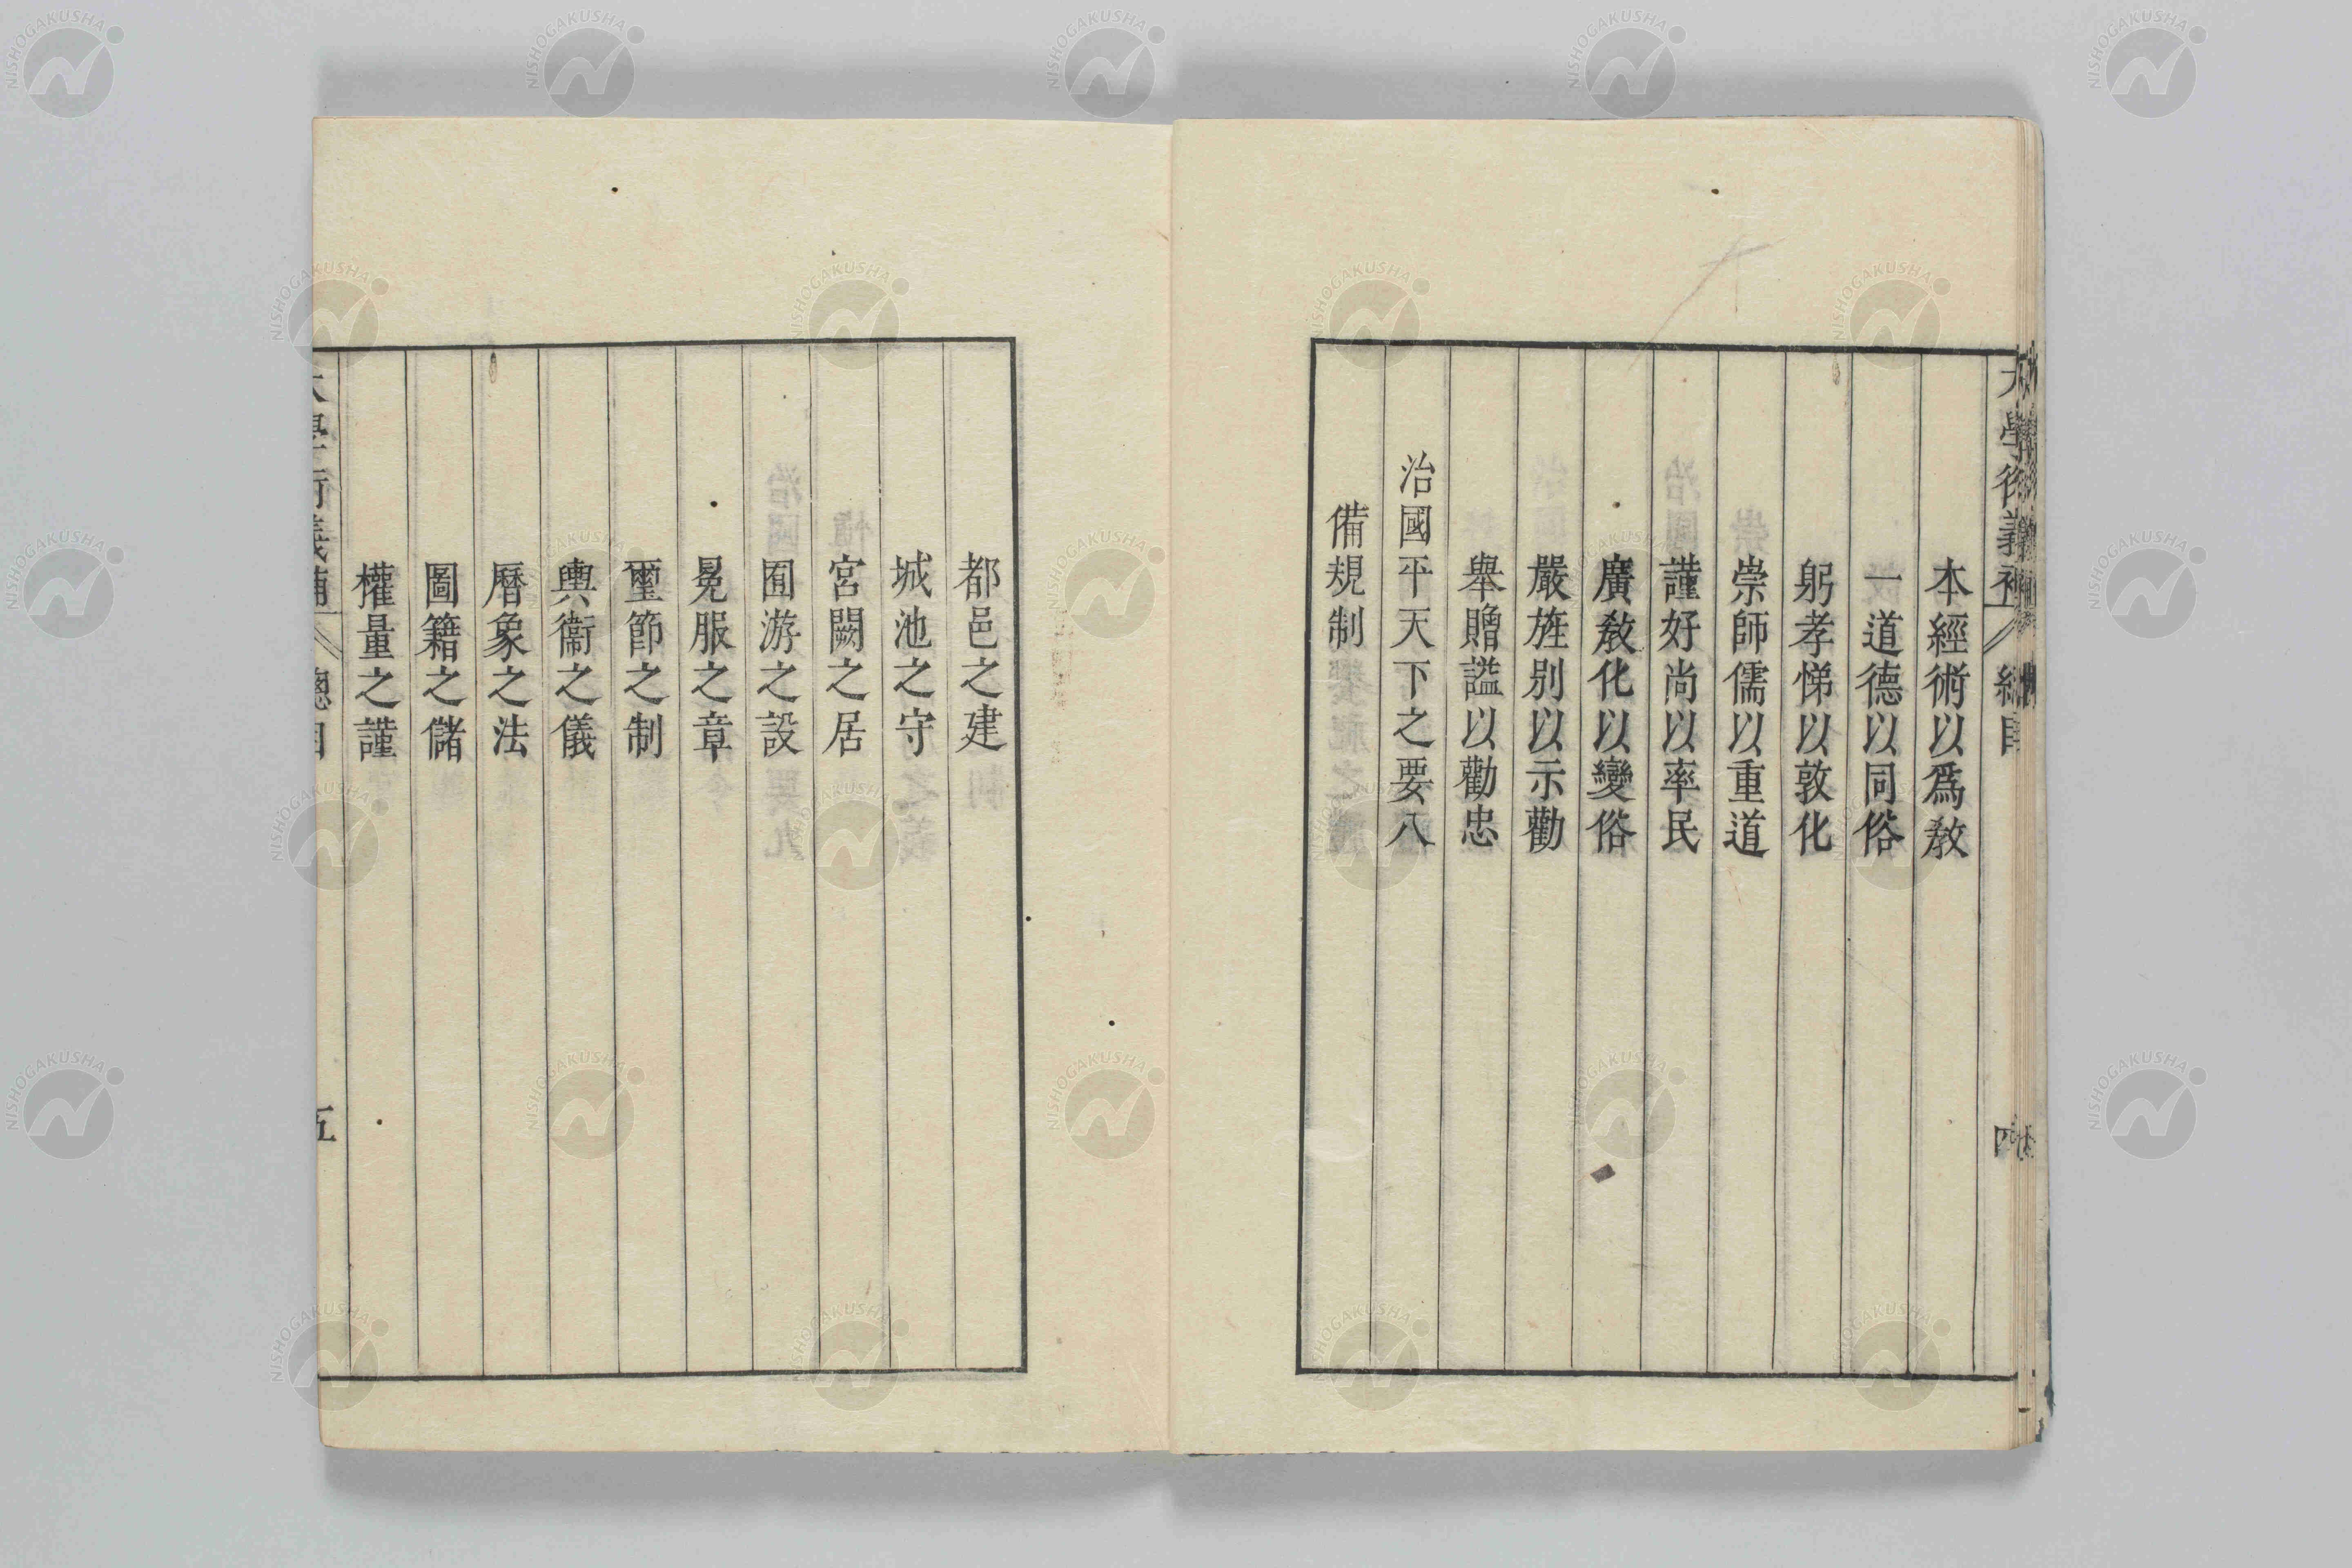 本經術以爲敎
一道德以同俗
躬孝悌以敦化
崇師儒以重道
謹好尚以率民
廣敎化以變俗
嚴旌别以示勸
舉贈謚以勸忠
治國平天下之要八
備規制
都邑之建
城池之守
宮闕之居
囿游之設
冕服之章
璽節之制
輿衞之儀
曆象之法
圖籍之儲
權量之謹
五
NISHOGAKUSHA